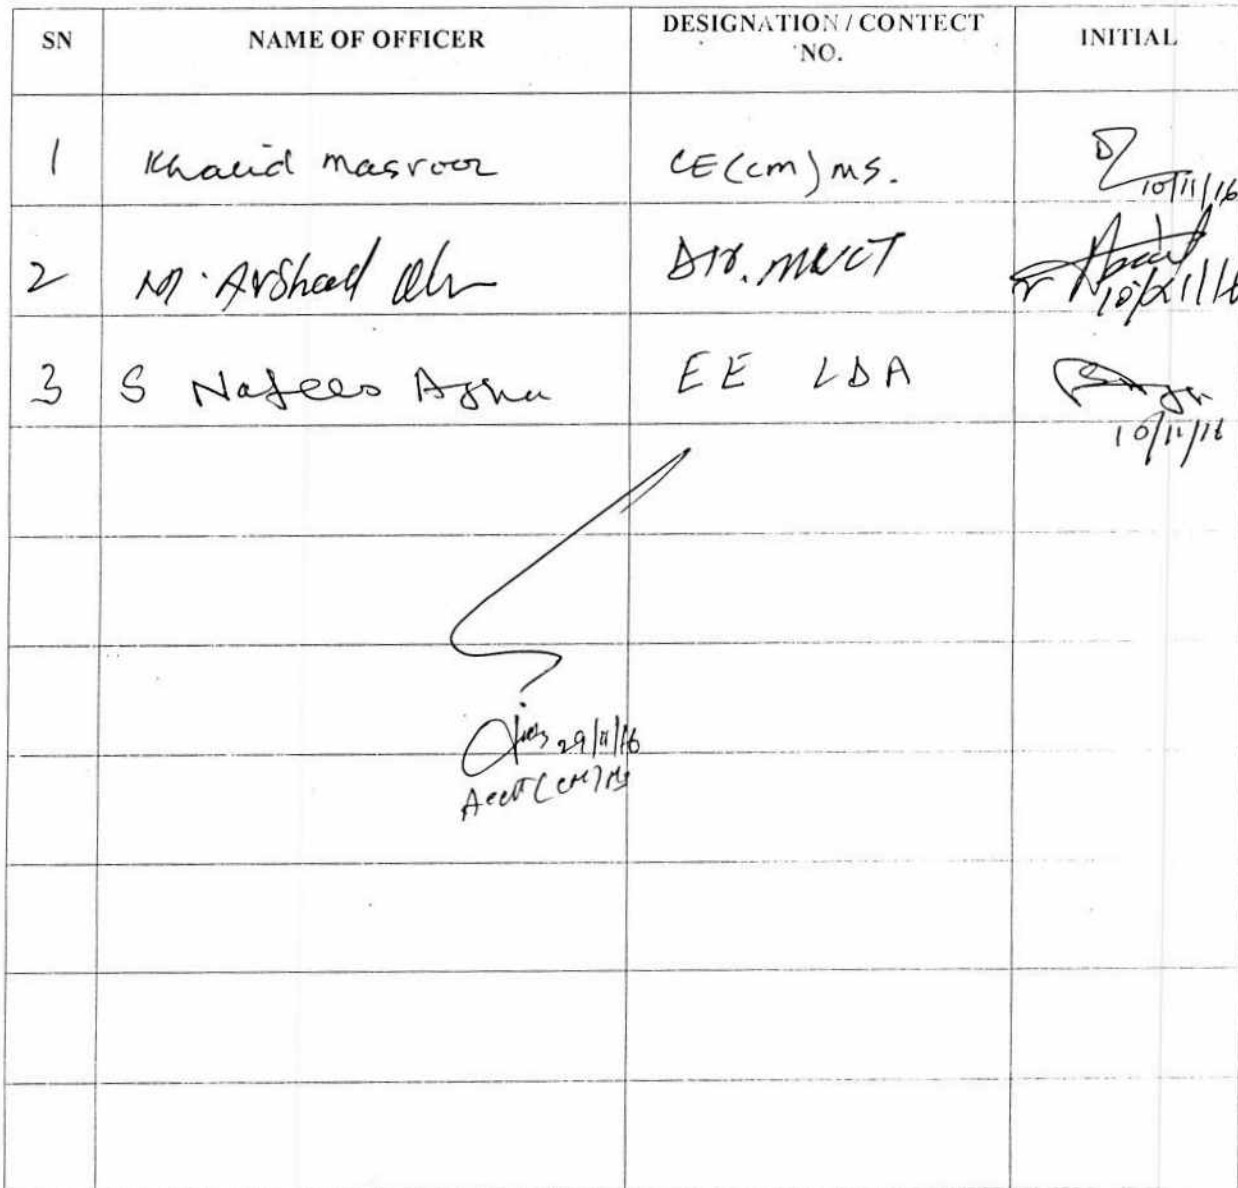 SN NAME OF OFFICER DESIGNATION / CONTECT NO. INITIAL
1 Khalid masroor CE(cm) ms. 10/11/16
2 M. Arshad Dir.
3 S Nafees Agha EE LDA 10/11/16
29/11/16